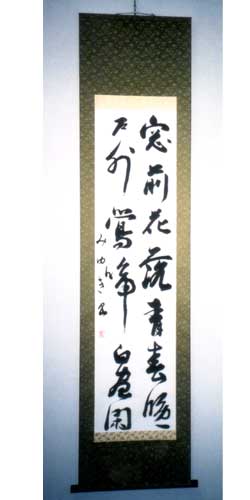 窓前花落青春晩
戸外鶯啼白昼閑
みゆき書